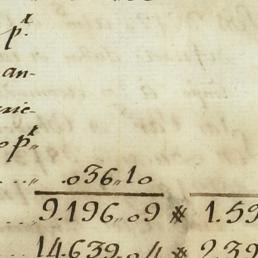 pt
an-
rie-
o pt
.. 036,,10
... 9.196,,09 * 1.59
.. 14.639,,04 * 2.39